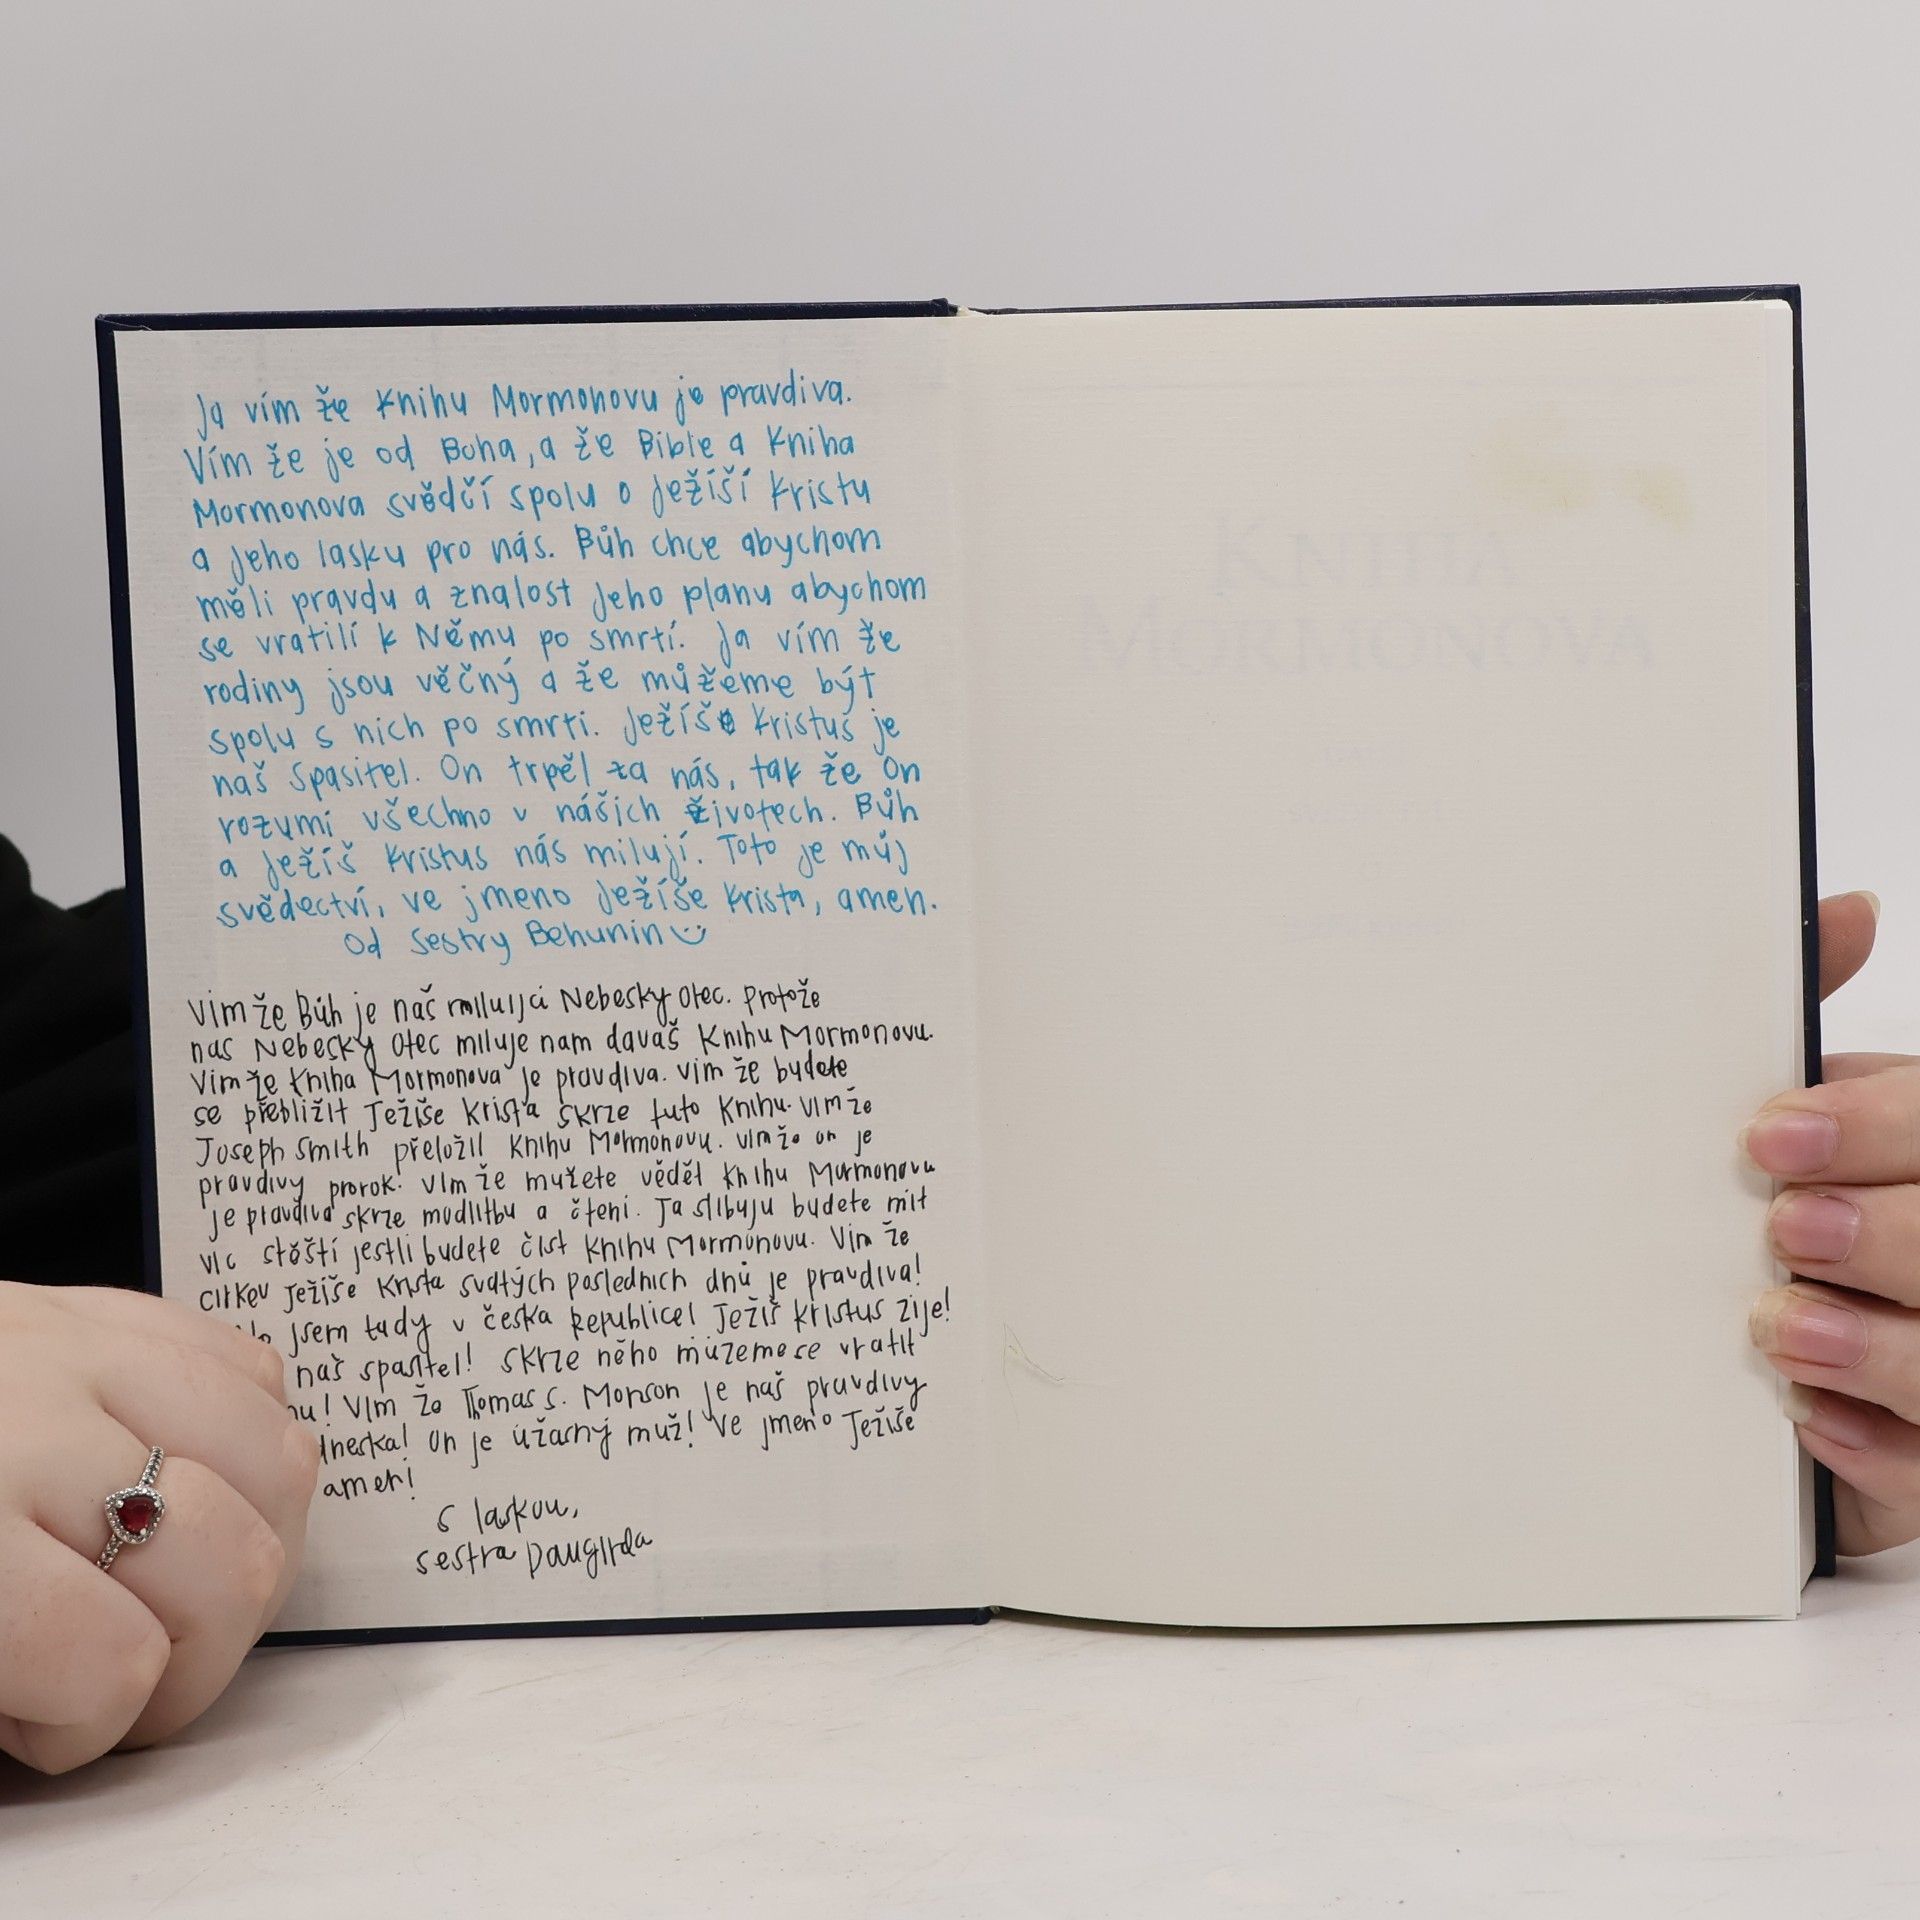 Ja vím že Knihu Mormonovu je pravdiva.
Vím že je od Boha, a že Bible a Kniha
Mormonova svědčí spolu o Ježíší Kristu
a Jeho lasku pro nás. Bůh chce abychom
měli pravdu a znalost Jeho planu abychom
se vratilí k Němu po smrtí. Ja vím že
rodiny jsou věčný a že můžeme být
spolu s nich po smrti. Ježíš Kristus je
naš Spasitel. On trpěl za nás, tak že On
rozumí všechno v nášich životech. Bůh
a Ježíš Kristus nás milují. Toto je můj
svědectví, ve jmeno Ježíše Krista, amen.
Od Sestry Behunin
Vim že Bůh je naš Nebesky Otec. Protože
nas Nebesky Otec miluje nam davaš Knihu Mormonovu.
Vim že Kniha Mormonova je pravdiva. Vim že budete
se přebližit Ježiše Krista skrze tuto Knihu. Vim že
Joseph Smith přeložil Knihu Mormonovu. Vim že on je
pravdivy prorok. Vim že mužete věděl Knihu Mormonovu
je pravdiva skrze modlitbu a čteni. Ja slibuju budete mit
vic stěští jestli budete čist Knihu Mormonovu. Vim že
cirkev Ježiše Krista svatých poslednich dnů je pravdiva!
jsem tady v česka Republice! Ježiš Kristus zije!
naš spasitel! Skrze něho můzeme se vratit
Vim že Thomas S. Monson je naš pravdivy
dneska! On je úžasný muž! Ve jmeno Ježiše
amen!
S laskou,
sestra Daugirda
KNIHA
MORMONOVA